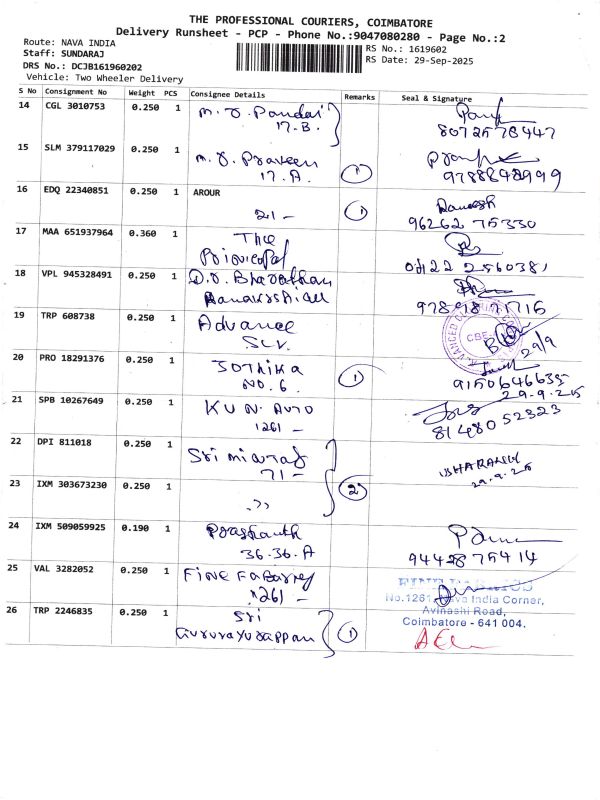 THE PROFESSIONAL COURIERS, COIMBATORE
Delivery Runsheet - PCP - Phone No.:9047080280 - Page No.:2
Route: NAVA INDIA
Staff: SUNDARAJ
DRS No.: DCJB161960202
Vehicle: Two Wheeler Delivery
RS No.: 1619602
RS Date: 29-Sep-2025
S No Consignment No Weight PCS Consignee Details Remarks Seal & Signature
14 CGL 3010753 0.250 1
17.B.
8072578447
15 SLM 379117029 0.250 1 M.J. Praveen 1
17.A. 9788848999
16 EDQ 22340851 0.250 1 AROUR 1
21 - 96262 75330
17 MAA 651937964 0.360 1 The
Principal 0422 2560381
18 VPL 945328491 0.250 1
19 TRP 608738 0.250 1 Advance
29/9
20 PRO 18291376 0.250 1 Jothika 1
NO. 6. 9150646635
29.9.25
21 SPB 10267649 0.250 1 KUN Auto
1261 - 81480 52323
22 DPI 811018 0.250 1 Sri
71 - BHARANI
29.9.25
23 IXM 303673230 0.250 1 ,, 2
24 IXM 509059925 0.190 1 Prashanth
36.36.A 9442875414
25 VAL 3282052 0.250 1 Fine
1261 - FINE FABRICS
No.1261, Nava India Corner,
Avinashi Road,
Coimbatore - 641 004.
26 TRP 2246835 0.250 1 Sri
Guruvayurappan 1